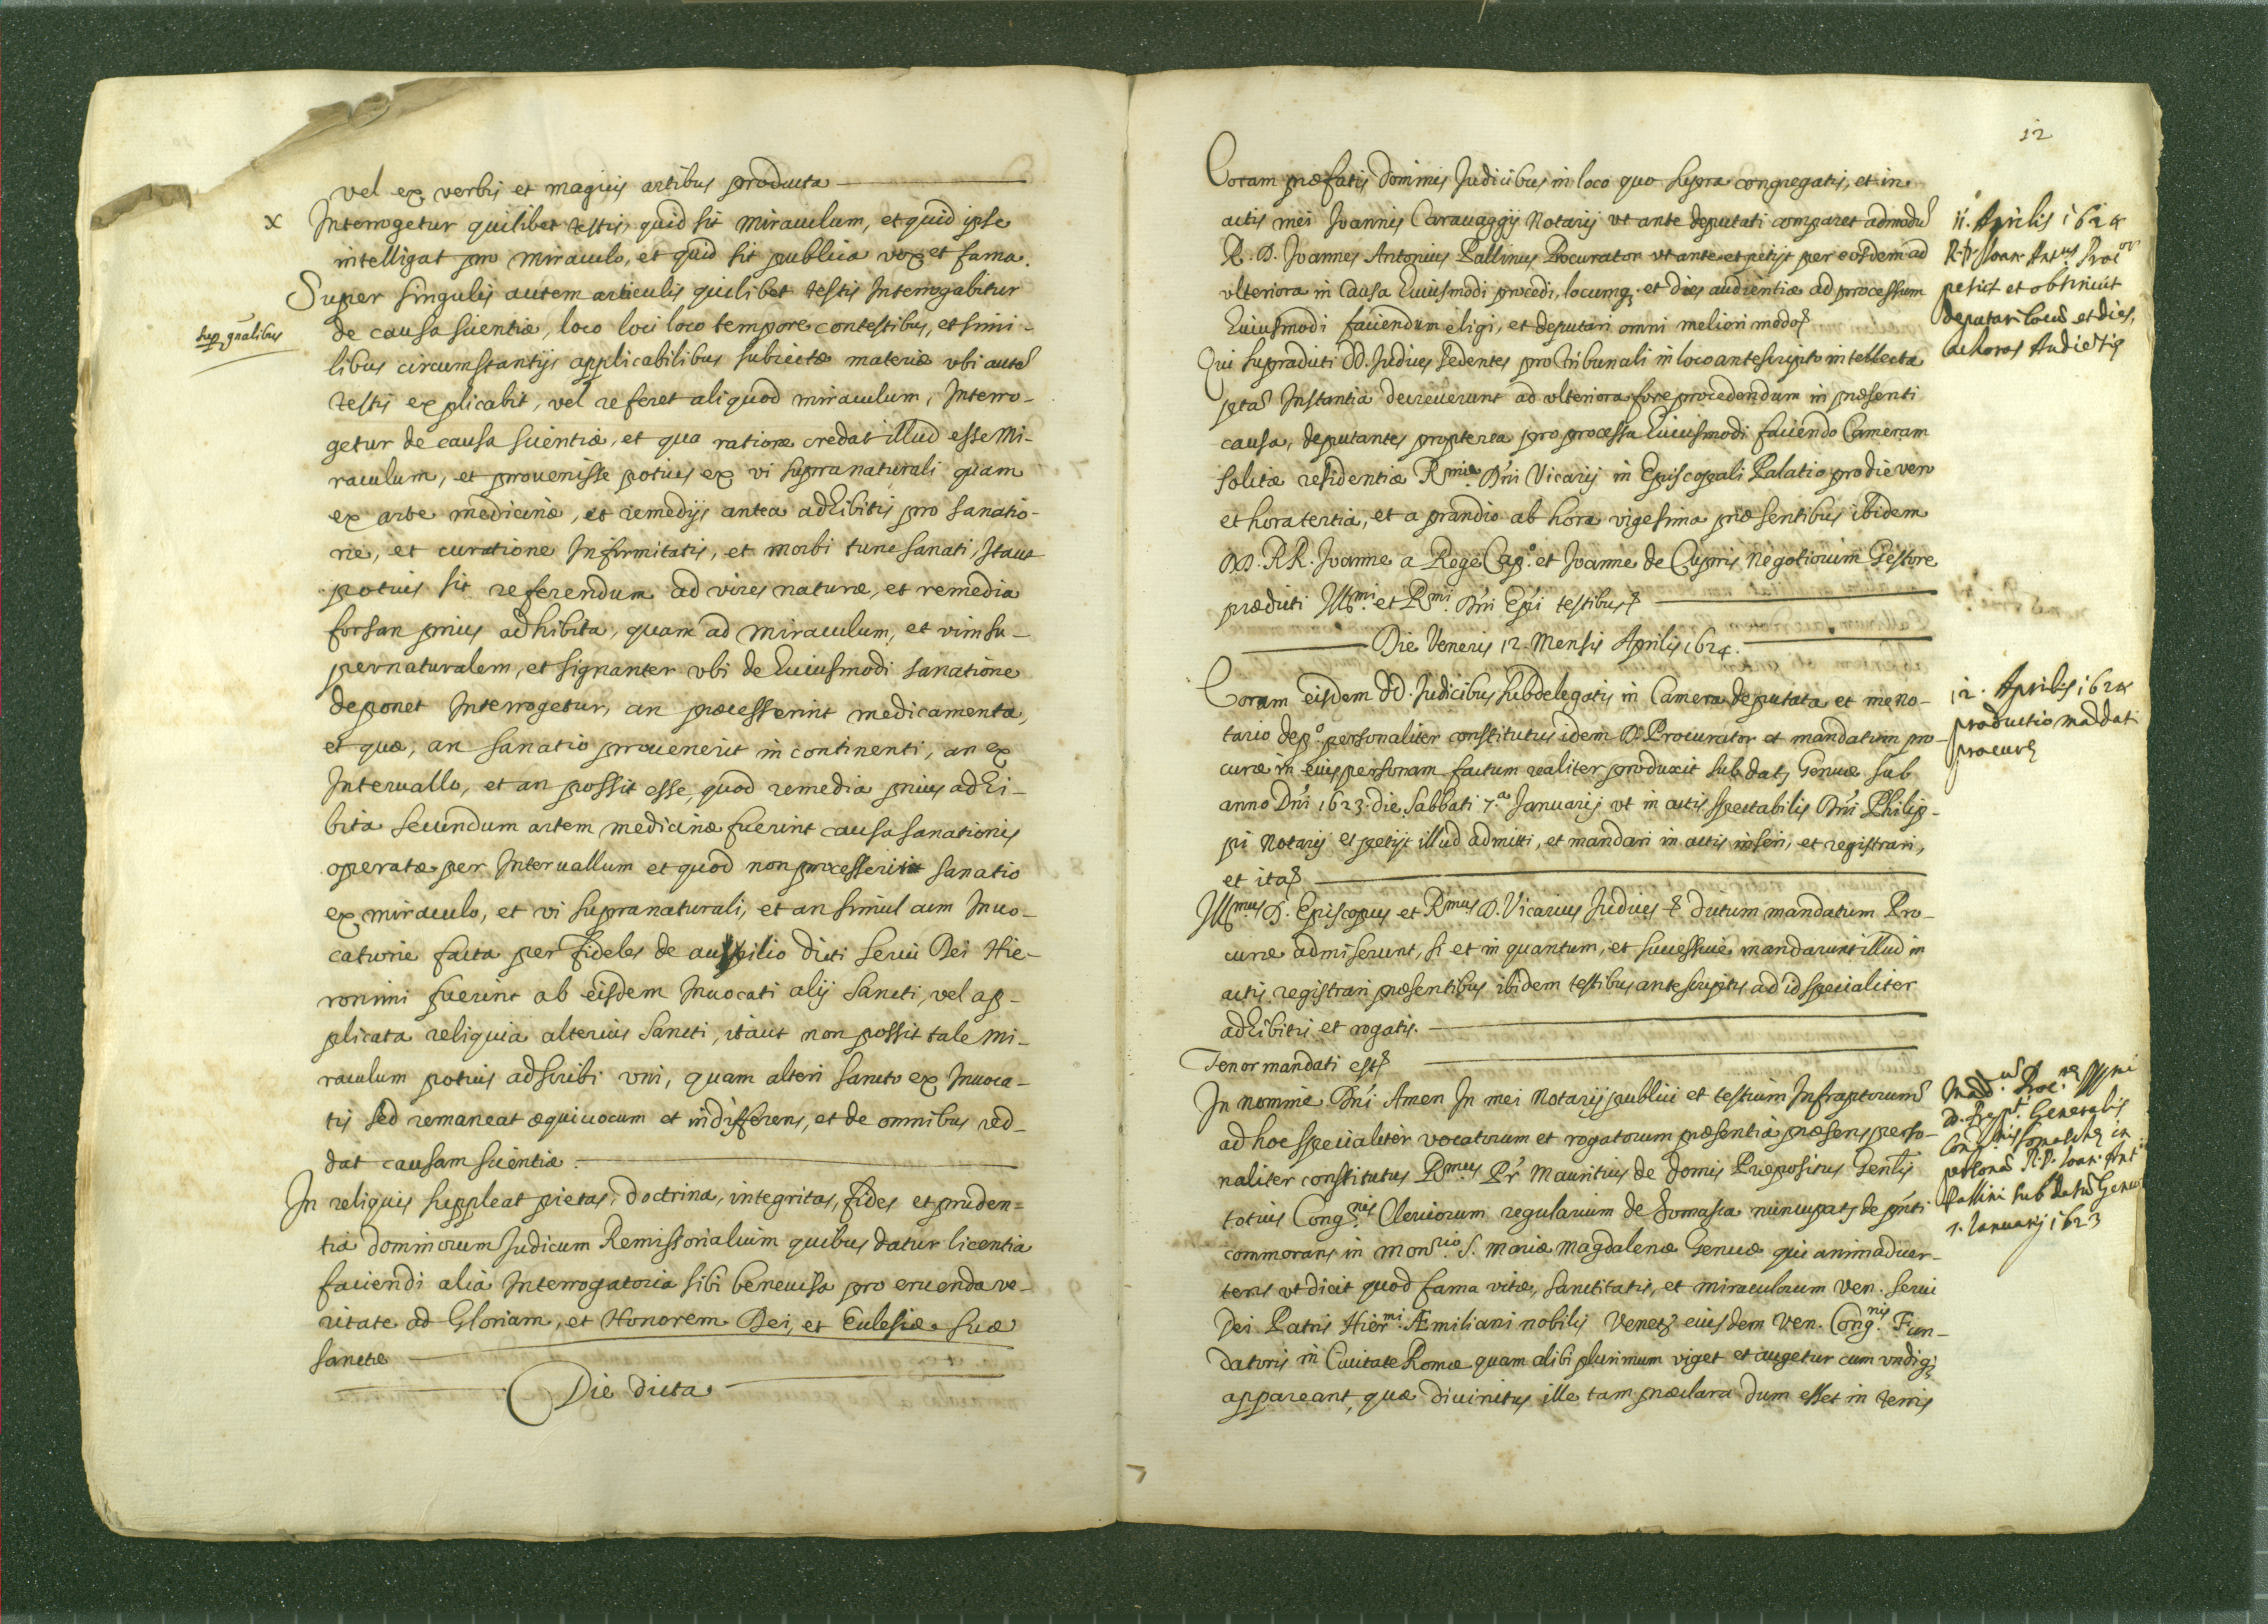 vel ex verbis et magicis artibus producta
x Interrogetur quilibet testis, quid sit miraculum, et quid ipse
intelligat pro miraculo, et quid sit publica vox et fama.
Super singulis autem articulis quilibet testis Interrogabitur
sup. gnalibus
de causa scientiæ, loco loci loco tempore contestibus, et simi-
libus circumstantijs applicabilibus subiectæ materiæ vbi autē
testis explicabit, vel referet aliquod miraculum, Interro-
getur de causa scientiæ, et qua ratione credat illud esse Mi-
raculum, et prouenisse potius ex vi supranaturali quam
ex arte medicinæ, et remedijs antea adhibitis pro sanatio-
ne, et curatione Infirmitatis, et morbi tunc sanati, Itaut
potius sit referendum ad vires naturæ, et remedia
forsan prius adhibita, quam ad miraculum, et vim su-
pernaturalem, et signanter vbi de huiusmodi sanatione
deponet Interrogetur, an præcesserint medicamenta,
et quæ, an sanatio prouenerit in continenti, an ex
Interuallo, et an possit esse, quod remedia prius adhi-
bita secundum artem medicinæ fuerint causa sanationis
operatæ per Interuallum et quod non processerit sanatio
ex miraculo, et vi supranaturali, et an simul cum Inuo-
catione facta per fideles de auxilio dicti serui Dei Hie-
ronimi fuerint ab eisdem Inuocati alij sancti, vel ap-
plicata reliquia alterius sancti, itaut non possit tale Mi-
raculum potius adscribi vni, quam alteri sancto ex Inuoca-
tis sed remaneat æquiuocum et indifferens, et de omnibus red-
dat causam scientiæ.
In reliquis suppleat pietas, doctrina, integritas, fides et pruden=
tia dominorum Judicum Remissorialium quibus datur licentia
faciendi alia Interrogatoria sibi beneuisa pro eruenda ve-
ritate ad Gloriam, et Honorem Dei, et Ecclesiæ suæ
sanctæ
Die dicta
12
Coram præfatis Dominis Judicibus in loco quo supra congregatis, et in
actis mei Joannis Carauaggij Notarij vt ante deputati comparet admodū
R. D. Joannes Antonius Pallinus Procurator vt ante et petijt per eosdem ad
vlteriora in Causa huiusmodi procedi, locumq; et dies audientiæ ad processum
huiusmodi faciendum eligi, et deputari omni meliori modo
11. Aprilis 1624
R. P. Joan: Antus Procor
petijt et obtinuit
deputari locū et dies,
ac horas Audietiæ
Qui supradicti DD. Judices sedentes pro Tribunali in loco antescripto intellecta
pta Instantia decreuerunt ad vlteriora fore procedendum in præsenti
causa, deputantes propterea pro processu huiusmodi faciendo Cameram
solitæ residentiæ Rmi Dni Vicarij in Episcopali Palatio pro die ven
et hora tertia, et a prandio ab hora vigesima præsentibus ibidem
DD. RR. Joanne a Rege Capo. et Joanne de Cupris Negotiorum Gestore
prædicti Illmi et Rmi Dni Epi testibus
Die Veneris 12. Mensis Aprilis 1624.
Coram eisdem DD. Judicibus subdelegatis in Camera deputata et me no-
tario depo. personaliter constitutus idem D. Procurator et mandatum pro-
curæ in eius personam factum realiter produxit sub dat. Genuæ sub
anno Dni 1623. die sabbati 7.a Januarij vt in actis spectabilis Dni Philip-
pi Notarij et petijt illud admitti, et mandari in actis inseri, et registrari,
et ita
12. Aprilis 1624
productio maddati
procuræ
Illmus D. Episcopus et Rmus D. Vicarius Judices dictum mandatum Pro-
curæ admiserunt, si et in quantum, et successiue mandarunt illud in
actis registrari præsentibus ibidem testibus antescriptis ad id specialiter
adhibitis et rogatis.
Tenor mandati est
In nomine Dni Amen In mei Notarij publici et testium Infraptorum
ad hoc specialiter vocatorum et rogatorum præsentia præsens perso-
naliter constitutus Rmus Pr. Mauritius de Domis Præpositus Genlis
totius Congnis Clericorum regularium de Somasca nuncupat. de pnti
commorans in Monrio S. Mariæ Magdalenæ Genuæ qui animaduer-
tens vt dicit quod fama vitæ, sanctitatis, et miraculorum Ven. serui
Dei Patris Hiermi Æmiliani nobilis Veneti eiusdem Ven. Congnis Fun-
datoris in Ciuitate Romæ quam alibi plurimum viget et augetur cum vndiq;
appareant, quæ diuinitus ille tam præclara dum esset in terris
Generalis
Congnis Somaschæ in
personā R. P. Joan: Ant
Pallini sub datū Genu
7. Januarij 1623